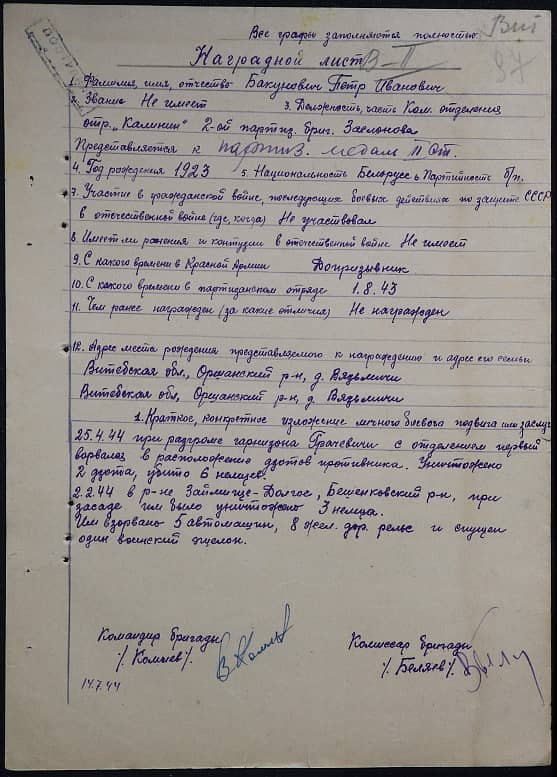 Все графы заполняются полностью.
Вит
97
Наградной лист В-II
1. Фамилия, имя, отчество Бакунович Петр Иванович
2. Звание Не имеет 3. Должность, часть Ком. отделения
отр. „Калинин" 2-ой партиз. бриг. Заслонова
Представляется к партиз. медаль II ст.
4. Год рождения 1923 5. Национальность Белорусс 6 Партийность б/п.
7. Участие в гражданской войне, последующих боевых действиях по защите СССР
в отечественной войне (где, когда) Не участвовал
8. Имеет ли ранения и контузии в отечественной войне Не имеет
9. С какого времени в Красной Армии Допризывник
10. С какого времени в партизанском отряде 1.8.43
11. Чем ранее награжден (за какие отличия) Не награжден
12. Адрес места рождения представляемого к награждению и адрес его семьи
Витебская обл, Оршанский р-н, д. Вязьмичи
Витебская обл, Оршанский р-н, д. Вязьмичи
1. Краткое, конкретное изложение личного боевого подвига или заслуг
25.4.44 при разгроме гарнизона Грачевичи с отделением первый
ворвался в расположение дзотов противника. Уничтожено
2 дзота, убито 6 немцев.
2.2.44 в р-не Займище-Долгое, Бешенковский р-н, при
засаде им было уничтожено 3 немца.
Им взорвано 5 автомашин, 8 жел. дор. рельс и спущен
один воинский эшелон.
Командир бригады
/. Комлев/.
Комиссар бригады
/. Беляев/.
14.7.44